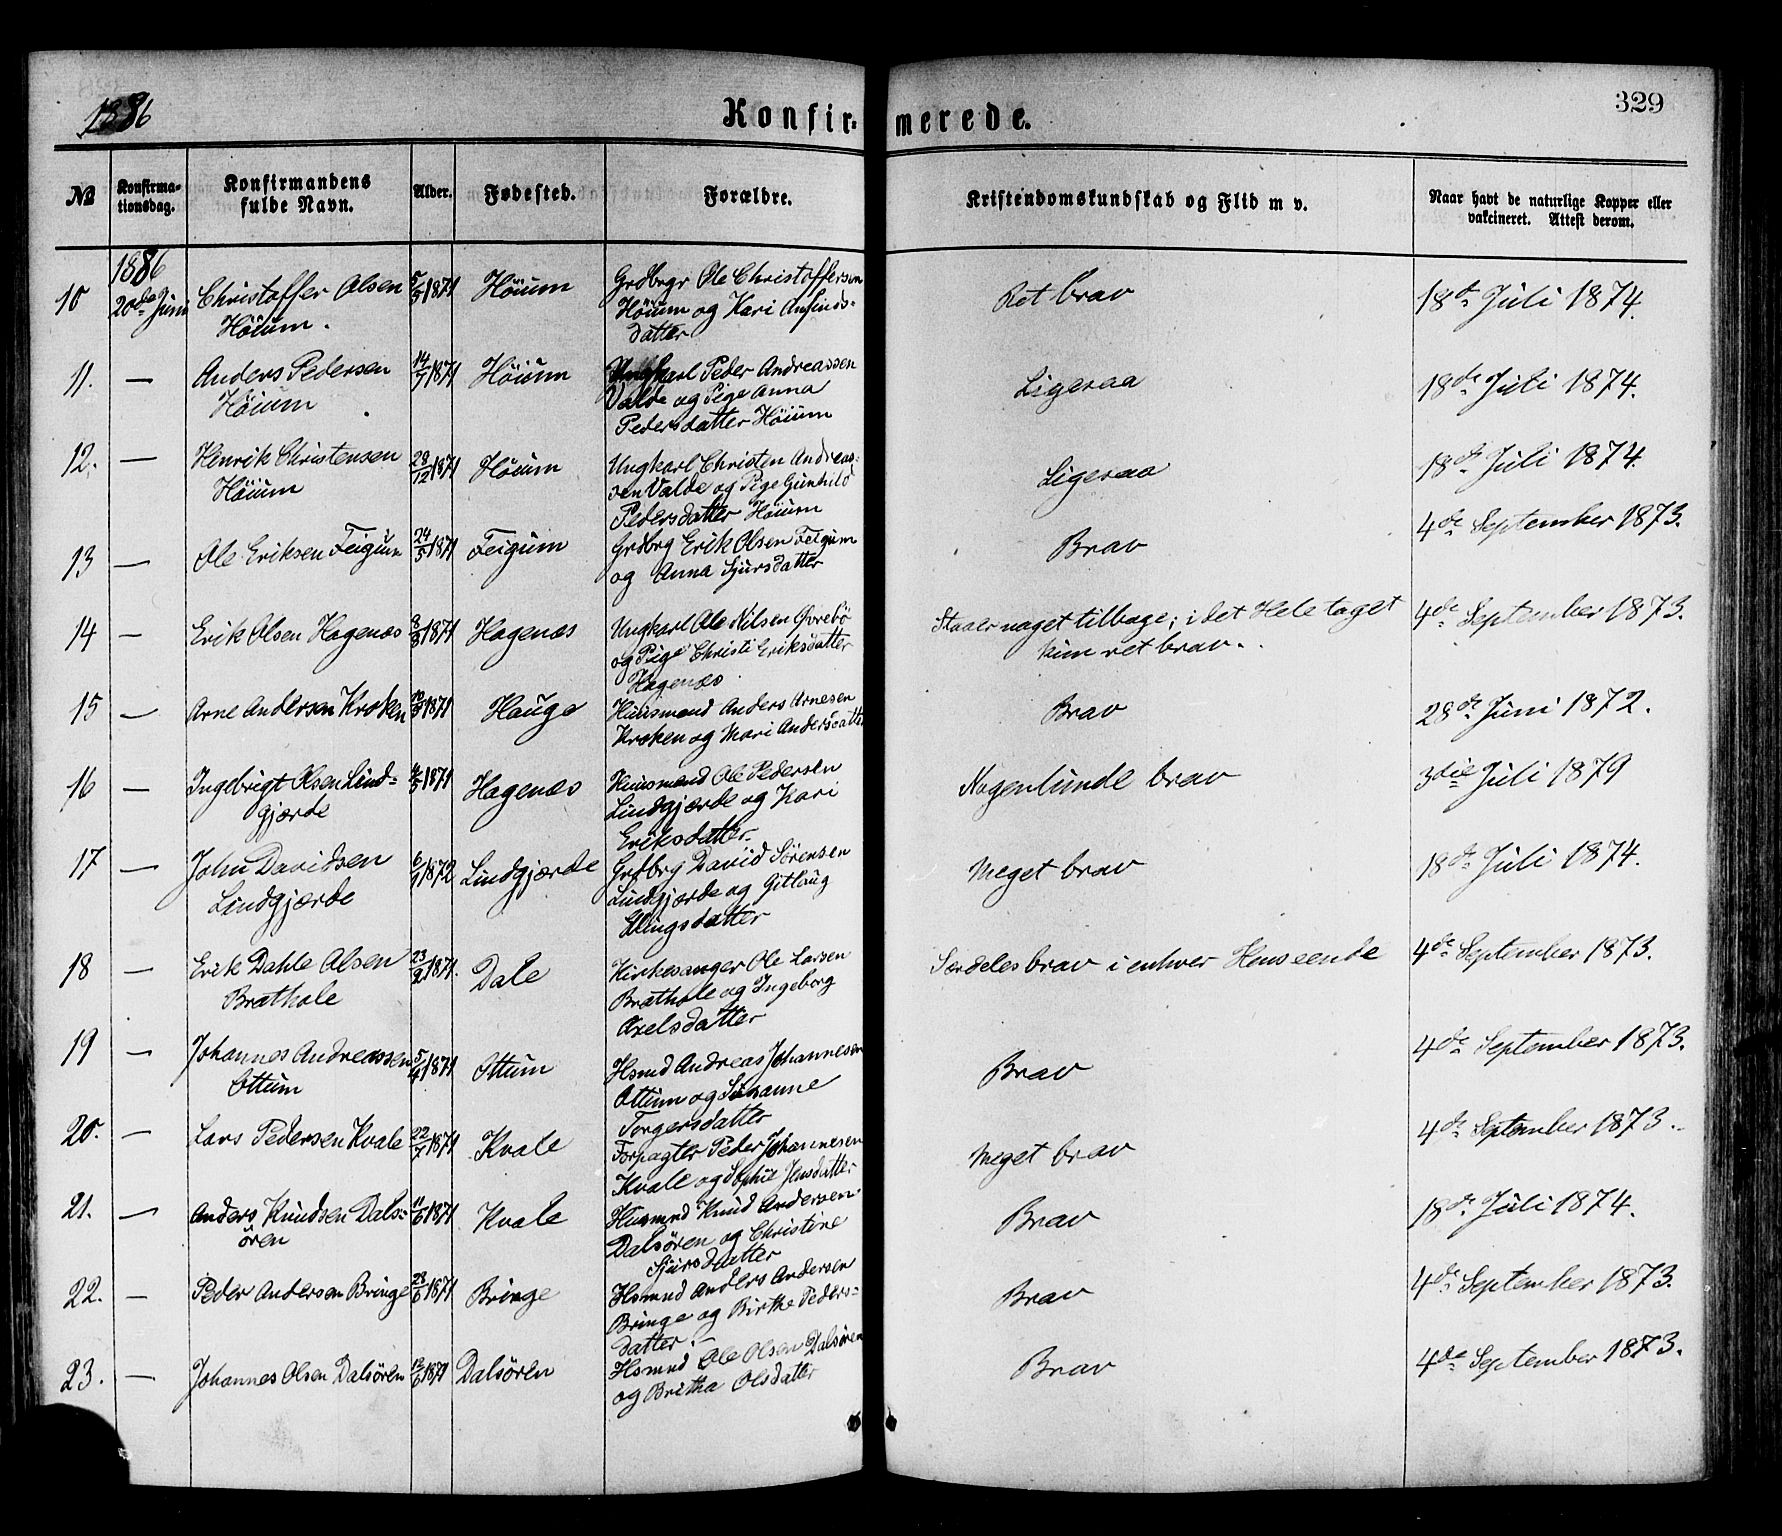 1886
Konfirmerede.
329
№
Konfirma-
tionsdag.
Konfirmandens
fulde Navn.
Alder.
Fødested.
Forældre.
Kristendomskundskab og Flid m v.
Naar havt de naturlige Kopper eller
vakcineret. Attest derom.
1886
10 20de Juni Christoffer Olsen 5/5 1871 Höium Grdbrgr Ole Christoffersen Ret brav 18de Juli 1874.
Höium. Höium og Kari Anfinds-
datter
11. — Anders Pedersen 14/7 1871 Höium Ungkarl Peder Andreassen Ligesaa 18de Juli 1874.
Höium Valde og Pige Anna
Pedersdatter Höium
12. — Henrik Christensen 28/12 1871 Höium Ungkarl Christen Andreas- Ligesaa 18de Juli 1874.
Höium sen Valde og Pige Gunhild
Pedersdatter Höium
13 — Ole Eriksen Feigum 24/5 1871 Feigum Grdbrg Erik Olsen Feigum Brav 4de September 1873.
og Anna Sjursdatter
14 — Erik Olsen Hagenæs 1871 Hagenæs Ungkarl Ole Nilsen Øvrebö Staaer noget tilbage; i det Hele taget 4de September 1873.
og Pige Christi Eriksdatter kun ret brav.
Hagenæs
15 — Arne Andersen Kroken 1871 Hauge Huusmand Anders Arnesen Brav 28de Juni 1872.
Kroken og Mari Andersdatter
16 — Ingebrigt Olsen Lind- 1871 Hagenæs Huusmand Ole Pedersen Nogenlunde brav 3die Juli 1879
gjærde Lindgjærde og Kari
Eriksdatter
17 — John Davidsen 6/1 1872 Lindgjærde Grdbrg David Sörensen Meget brav 18de Juli 1874.
Lindgjærde Lindgjærde og Gitlaug
Ellingsdatter
18 — Erik Dahle Olsen 23/2 1871. Dale Kirkesanger Ole Larsen Særdeles brav i enhver Henseende 4de September 1873.
Bræthole Bræthole og Ingeborg
Axelsdatter
19 — Johannes Andreassen 5/4 1871 Ottum Hsmd Andreas Johannesen Brav 4de September 1873.
Ottum Ottum og Susanne
Torgersdatter
20. — Lars Pedersen Kvale 22/7 1871 Kvale Forpagter Peder Johannesen Meget brav 4de September 1873.
Kvale og Sophie Jensdatter
21. — Anders Knudsen Dals- 11/6 1871 Kvale Husmd Knud Andersen Brav 18de Juli 1874.
ören Dalsören og Christine
Sjursdatter
22. — Peder Andersen Bringe 23/6 1871 Bringe Hsmnd Anders Andersen Brav 4de September 1873.
Bringe og Birthe Peders-
datter
23. — Johannes Olsen Dalsören 12/6 1871 Dalsören Hsmnd Ole Olsen Dalsören Brav 4de September 1873.
og Britha Olsdatter